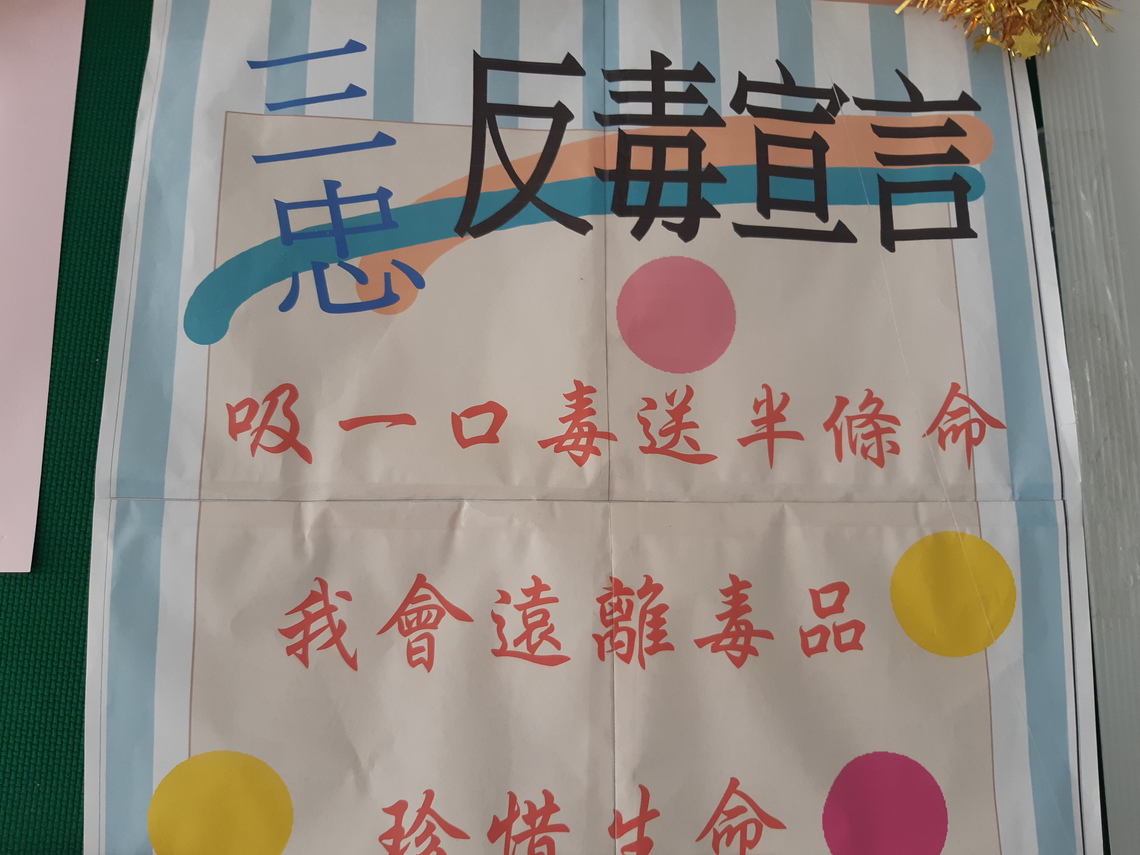 三忠
反毒宣言
吸一口毒送半條命
我會遠離毒品
珍惜生命